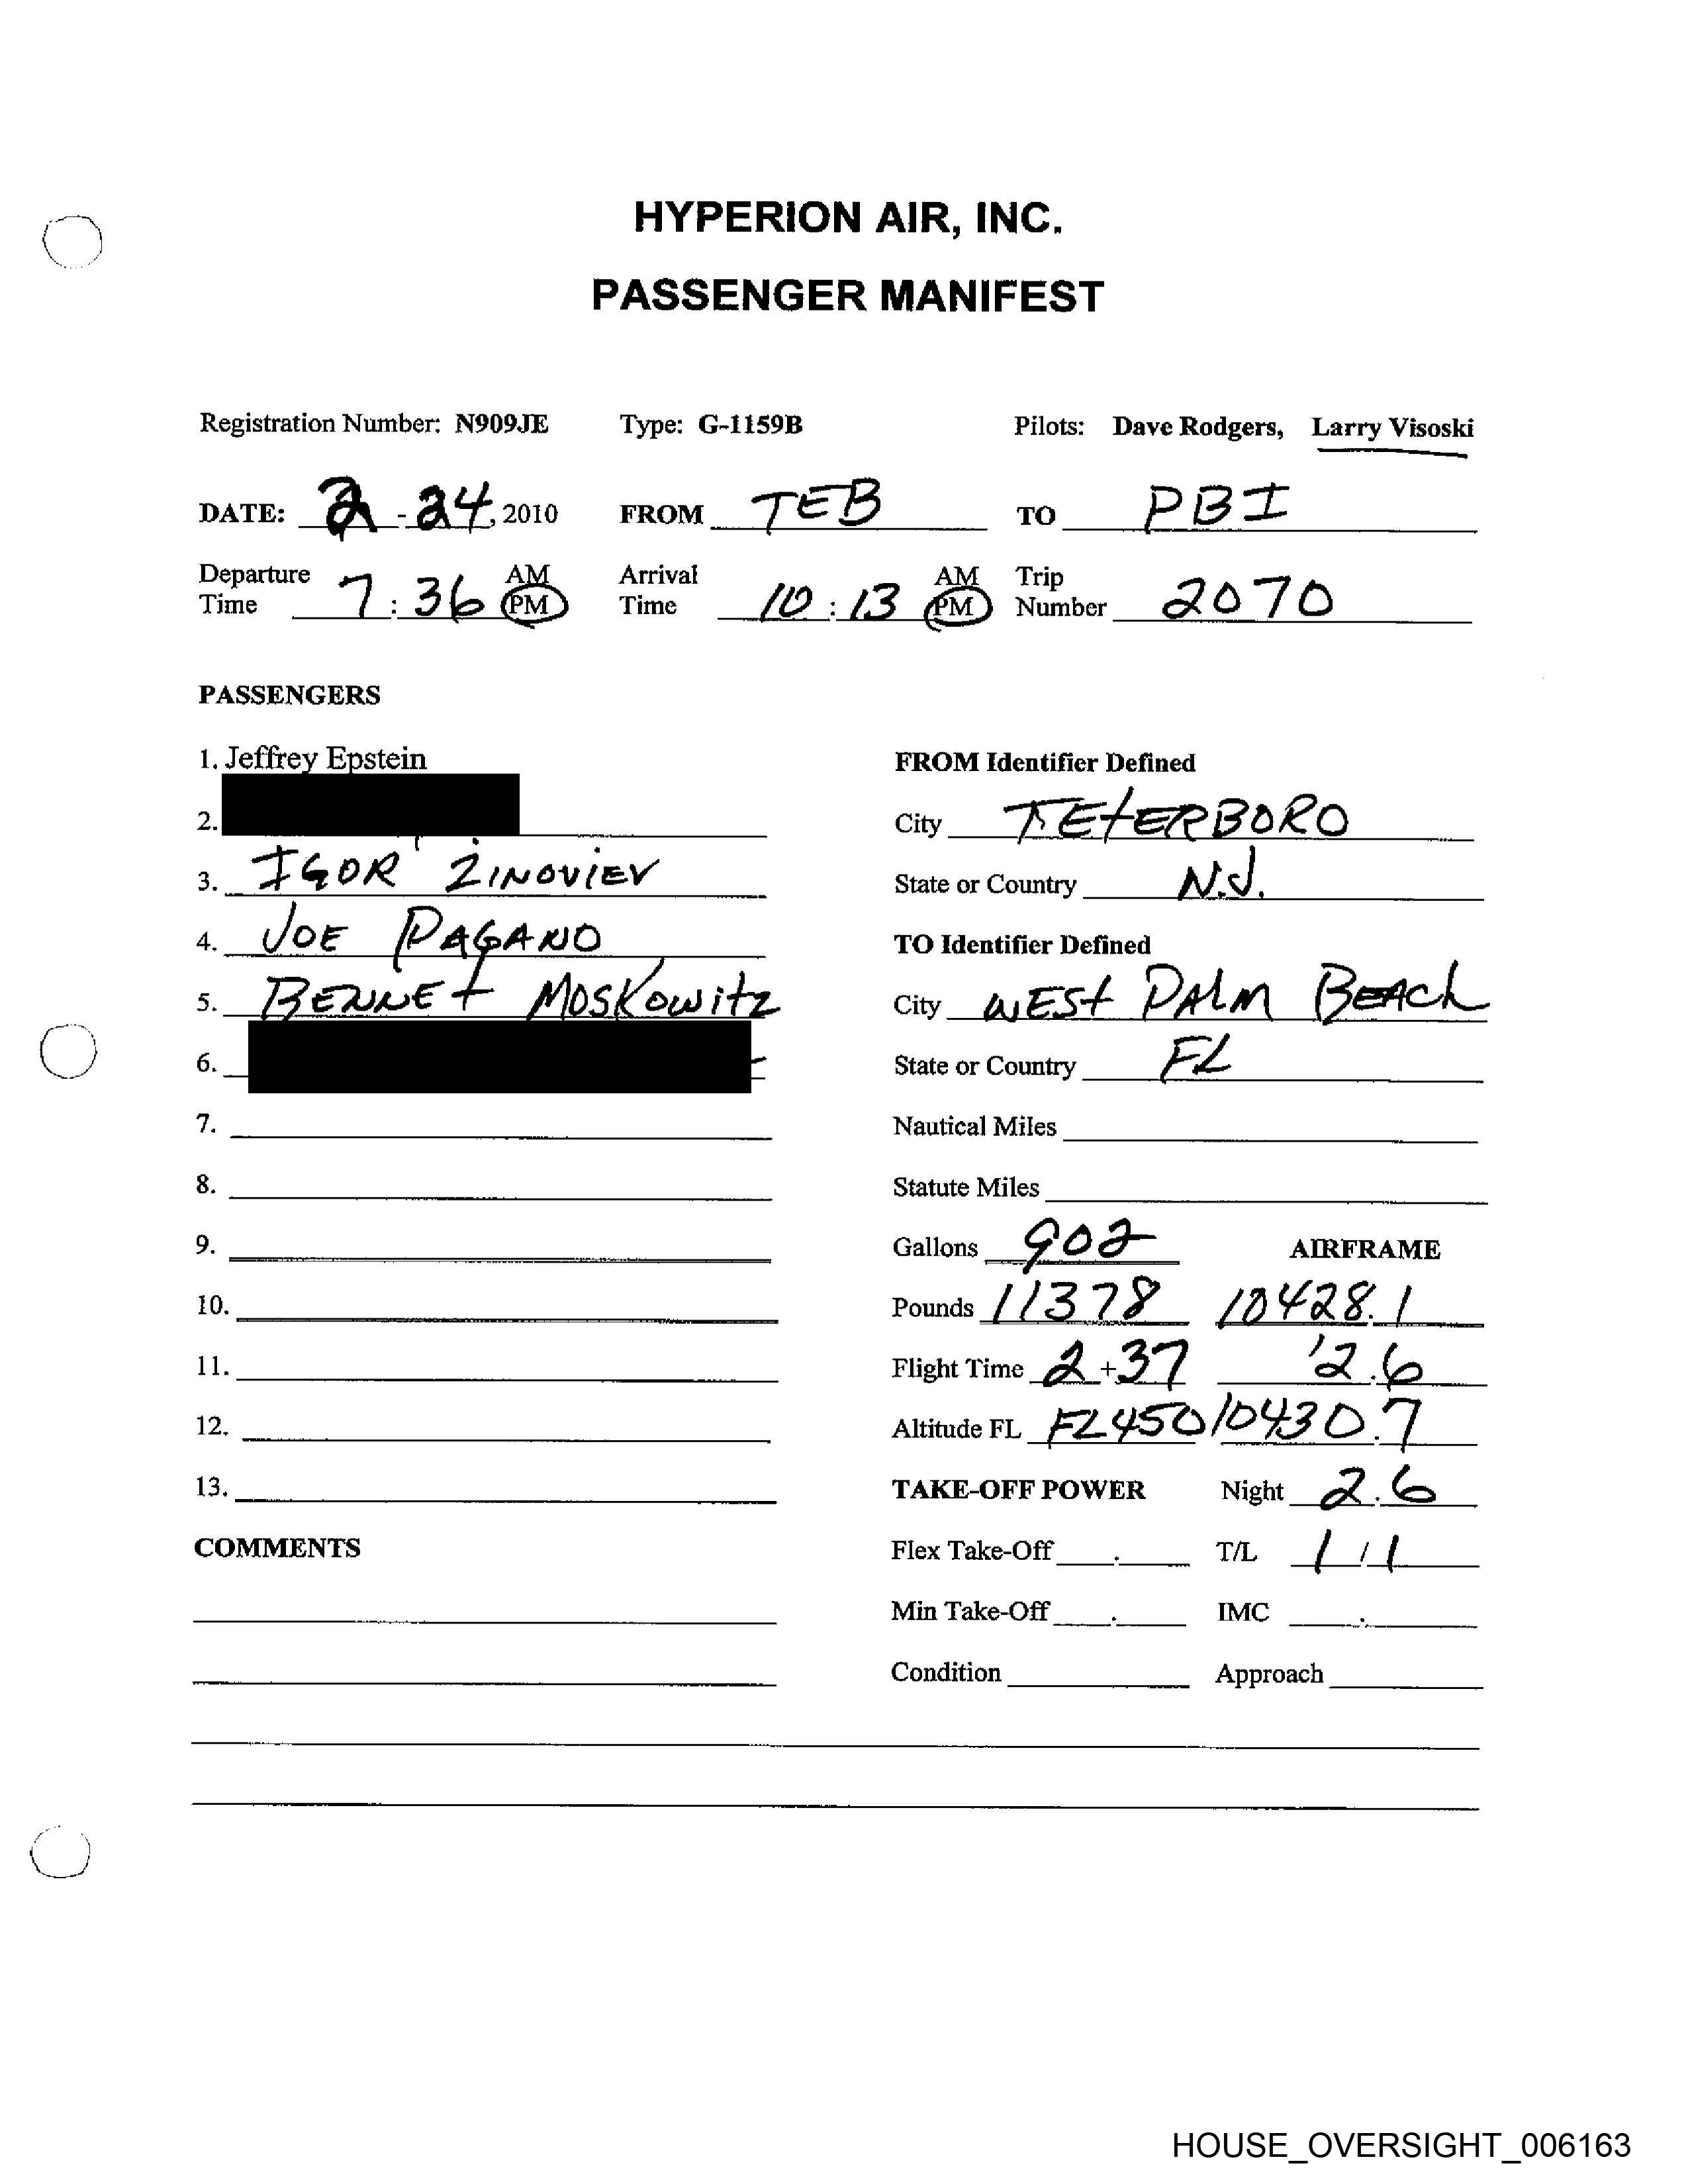 HYPERION AIR, INC.
PASSENGER MANIFEST
Registration Number: N909JE Type: G-1159B Pilots: Dave Rodgers, Larry Visoski
DATE: 2 - 24, 2010 FROM TEB TO PBI
Departure Time 7:36 AM PM Arrival Time 10:13 AM PM Trip Number 2070
PASSENGERS
1. Jeffrey Epstein
2.
3. IGOR ZINOVIEV
4. JOE PAGANO
5. BENNET MOSKOWITZ
6.
7.
8.
9.
10.
11.
12.
13.
COMMENTS
FROM Identifier Defined
City TETERBORO
State or Country N.J.
TO Identifier Defined
City WEST PALM BEACH
State or Country FL
Nautical Miles
Statute Miles
Gallons 902 AIRFRAME
Pounds 11378 10428.1
Flight Time 2+37 2.6
Altitude FL FL450 10430.7
TAKE-OFF POWER Night 2.6
Flex Take-Off . T/L 1/1
Min Take-Off . IMC .
Condition Approach
HOUSE_OVERSIGHT_006163